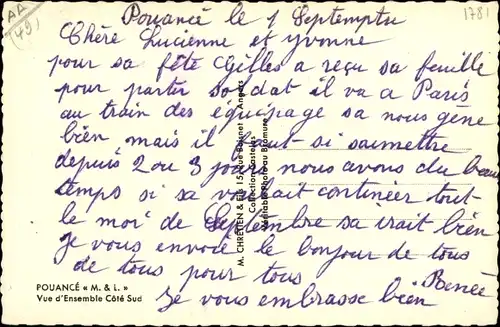 AA
(49)
1781
Pouancé le 1 Septemptu
Chère Lucienne et yvonne
pour sa fête Gilles a reçu sa feuille
pour partir soldat il va a Paris
au train des équipage sa nous gène
bien mais il faut si saumettre
depuis 2 ou 3 jours nous avons du beau
temps si sa voulait continéer tout
le moi de Septembre sa irait bien
je vous envoie le bonjour de tous
de tous pour tous
Renée
Je vous embrasse bien
POUANCÉ « M. & L. »
Vue d'Ensemble Côté Sud
M. CHRÉTIEN & Fils 15, rue Bosnet - Angers
Collection Costeaux
Véritable Photo au Bromure